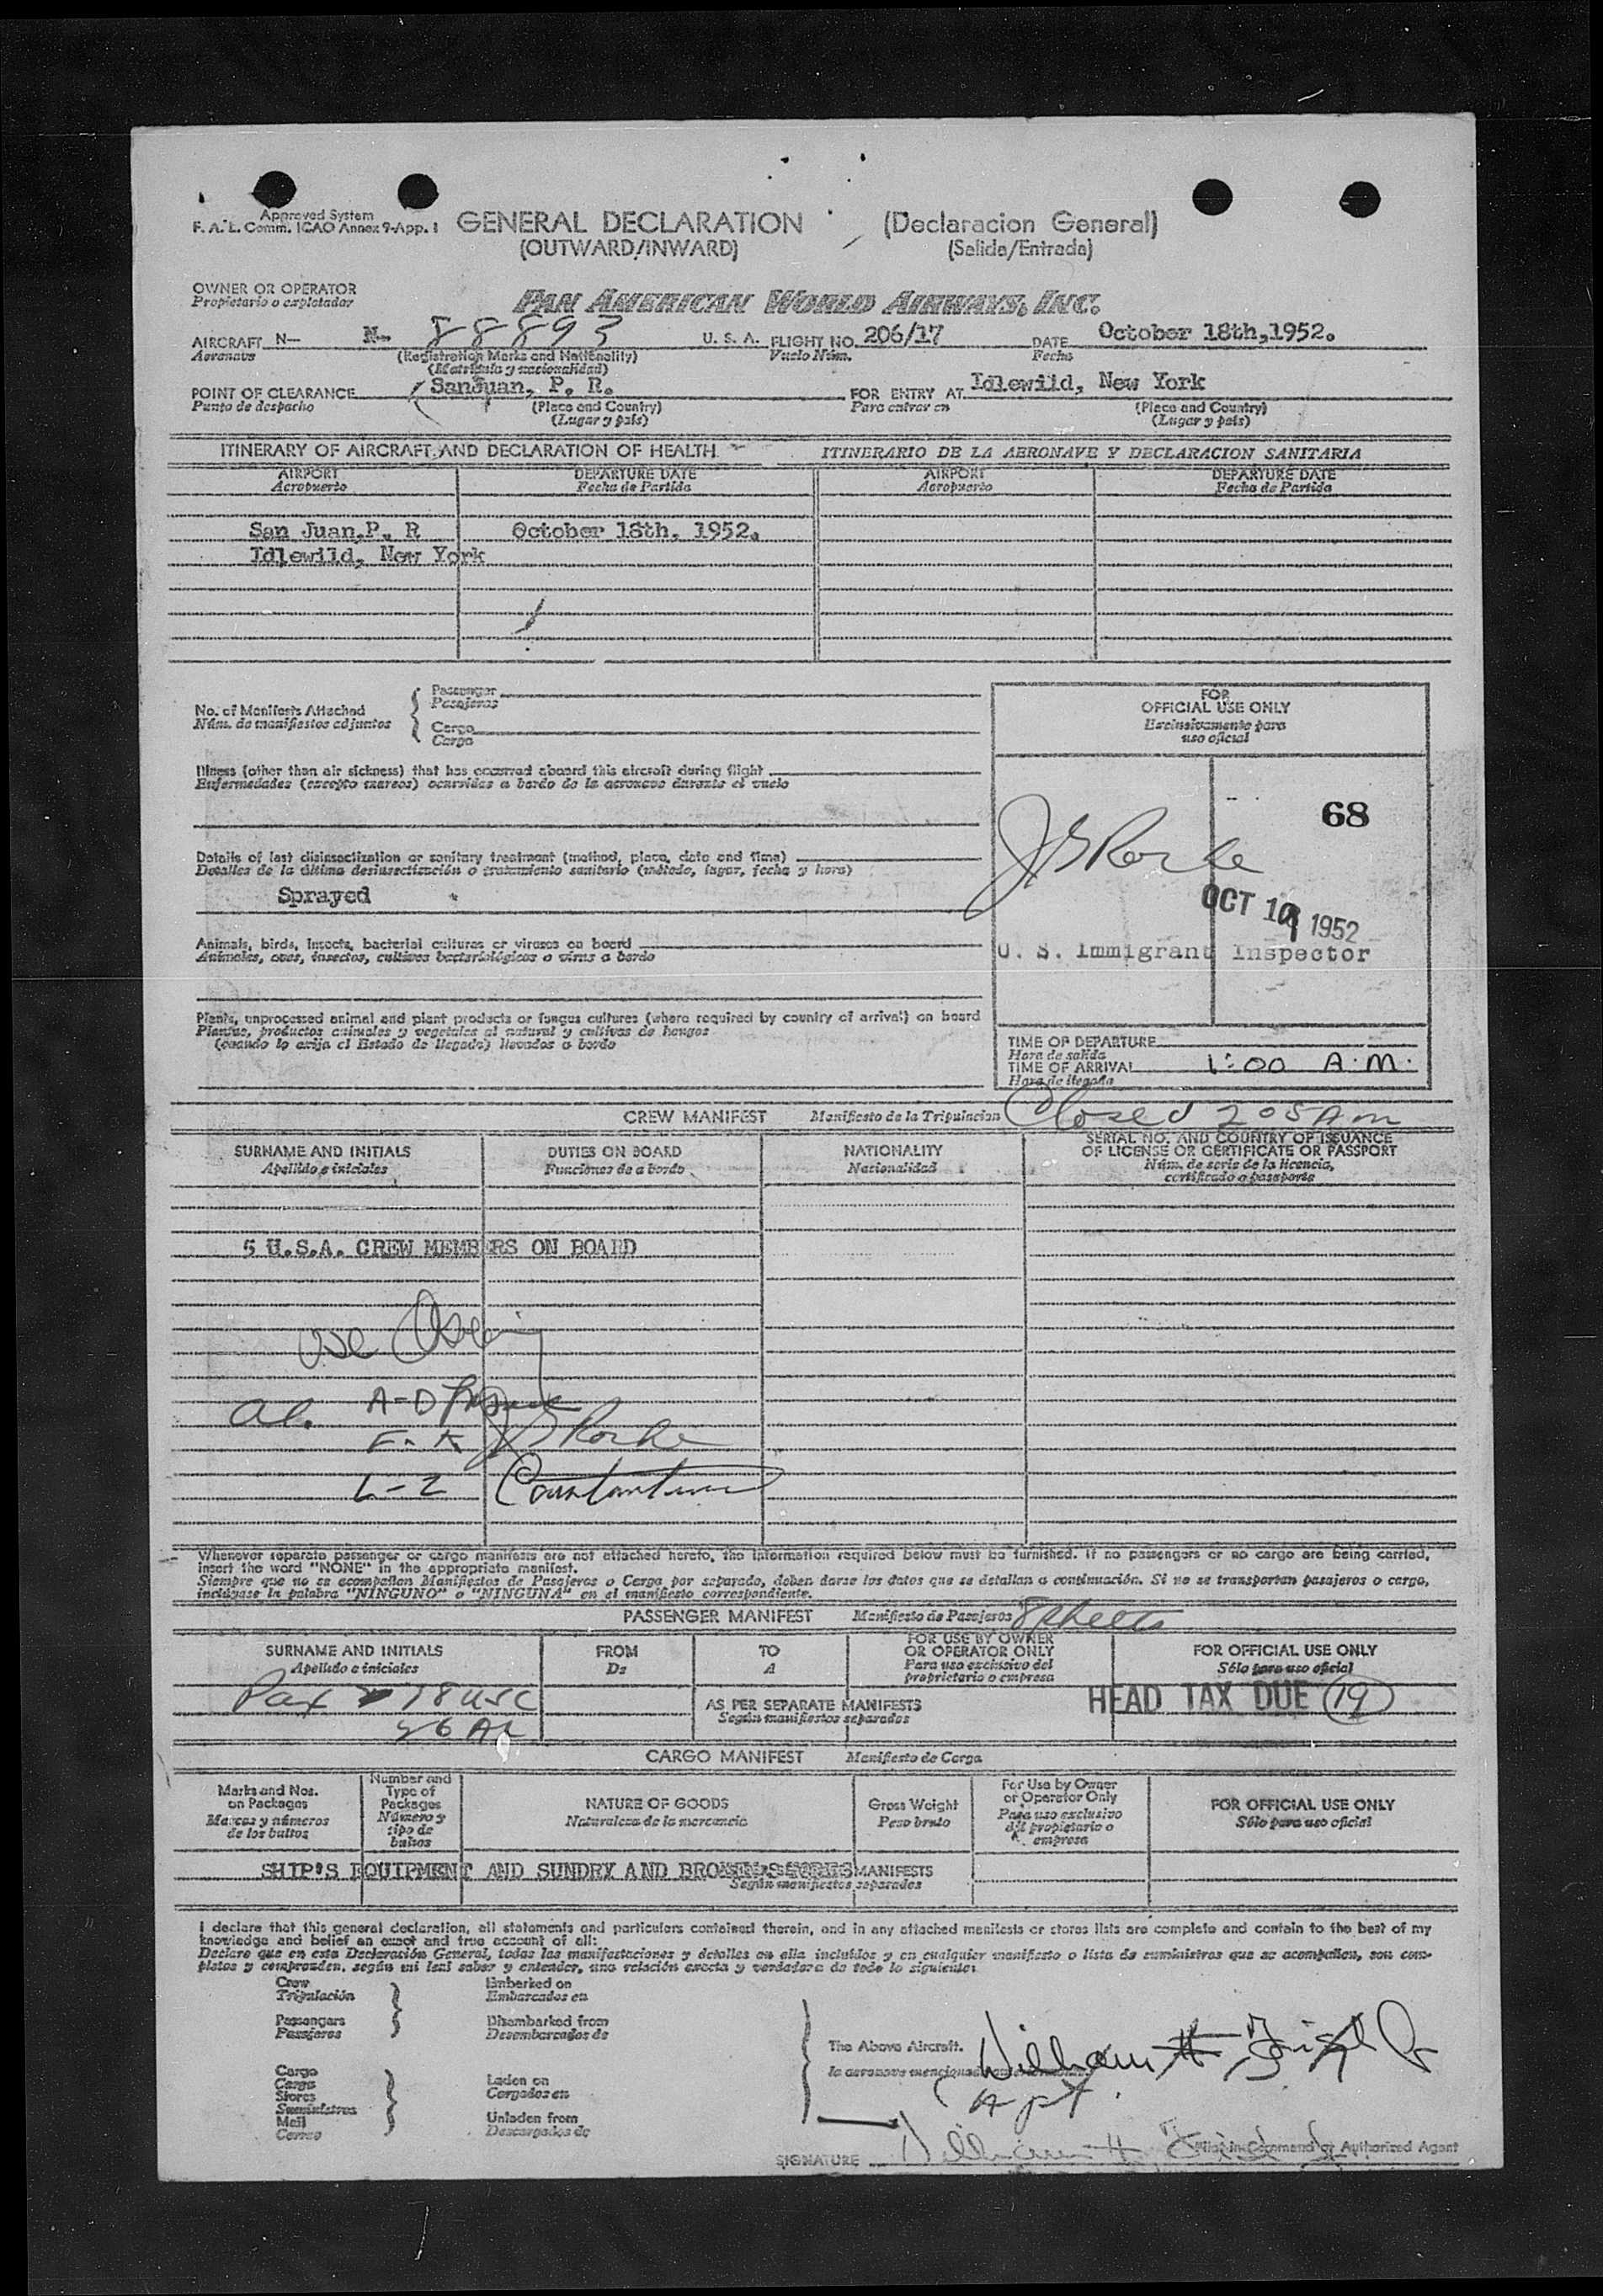 Approved System
F. A. L. Comm. ICAO Annex 9-App. 1
GENERAL DECLARATION (Declaracion General)
(OUTWARD/INWARD) (Salida/Entrada)
OWNER OR OPERATOR
Propietario o explotador
PAN AMERICAN WORLD AIRWAYS, INC.
AIRCRAFT N- N- 88893 U. S. A. FLIGHT NO. 206/17 DATE October 18th, 1952.
Aeronave (Registration Marks and Nationality) Vuelo Núm. Fecha
(Matrícula y nacionalidad)
POINT OF CLEARANCE SanJuan, P. R. FOR ENTRY AT Idlewild, New York
Punto de despacho (Place and Country) Para entrar en (Place and Country)
(Lugar y país) (Lugar y país)
ITINERARY OF AIRCRAFT AND DECLARATION OF HEALTH ITINERARIO DE LA AERONAVE Y DECLARACION SANITARIA
AIRPORT DEPARTURE DATE AIRPORT DEPARTURE DATE
Aeropuerto Fecha de Partida Aeropuerto Fecha de Partida
San Juan,P. R October 18th, 1952.
Idlewild, New York
No. of Manifests Attached
Núm. de manifiestos adjuntos
Passenger
Pasajeros
Cargo
Carga
FOR
OFFICIAL USE ONLY
Exclusivamente para
uso oficial
Illness (other than air sickness) that has occurred aboard this aircraft during flight
Enfermedades (excepto mareos) ocurridas a bordo de la aeronave durante el vuelo
68
Details of last disinsectization or sanitary treatment (method, place, date and time)
Detalles de la última desinsectización o tratamiento sanitario (método, lugar, fecha y hora)
Sprayed
J S Rorke
OCT 18 1952
U. S. Immigrant Inspector
Animals, birds, insects, bacterial cultures or viruses on board
Animales, aves, insectos, cultivos bacteriológicos o virus a bordo
Plants, unprocessed animal and plant products or fungus cultures (where required by country of arrival) on board
Plantas, productos animales y vegetales al natural y cultivos de hongos
(cuando lo exija el Estado de llegada) llevados a bordo
TIME OF DEPARTURE
Hora de salida
TIME OF ARRIVAL 1:00 A.M.
Hora de llegada
CREW MANIFEST Manifiesto de la Tripulacion Closed 205 Am
SURNAME AND INITIALS DUTIES ON BOARD NATIONALITY SERIAL NO. AND COUNTRY OF ISSUANCE
OF LICENSE OR CERTIFICATE OR PASSPORT
Apellido e iniciales Funciones de a bordo Nacionalidad Núm. de serie de la licencia,
certificado o pasaporte
5 U.S.A. CREW MEMBERS ON BOARD
usc
al. A-D
E-K J S Rorke
L-Z Constantine
Whenever separate passenger or cargo manifests are not attached hereto, the information required below must be furnished. If no passengers or no cargo are being carried,
insert the word "NONE" in the appropriate manifest.
Siempre que no se acompañen Manifiestos de Pasajeros o Carga por separado, deben darse los datos que se detallan a continuación. Si no se transportan pasajeros o carga,
inclúyase la palabra "NINGUNO" o "NINGUNA" en el manifiesto correspondiente.
PASSENGER MANIFEST Manifiesto de Pasajeros 8 sheets
SURNAME AND INITIALS FROM TO FOR USE BY OWNER
OR OPERATOR ONLY FOR OFFICIAL USE ONLY
Apellido e iniciales De A Para uso exclusivo del
propietario o empresa Sólo para uso oficial
Pax 18 USC
26 AL
AS PER SEPARATE MANIFESTS
Según manifiestos separados
HEAD TAX DUE 19
CARGO MANIFEST Manifiesto de Carga
Marks and Nos.
on Packages
Marcas y números
de los bultos
Number and
Type of
Packages
Número y
tipo de
bultos
NATURE OF GOODS
Naturaleza de la mercancía
Gross Weight
Peso bruto
For Use by Owner
or Operator Only
Para uso exclusivo
del propietario o
empresa
FOR OFFICIAL USE ONLY
Sólo para uso oficial
SHIP'S EQUIPMENT AND SUNDRY AND MANIFESTS
Según manifiestos separados
I declare that this general declaration, all statements and particulars contained therein, and in any attached manifests or stores lists are complete and contain to the best of my
knowledge and belief an exact and true account of all:
Declaro que en esta Declaración General, todas las manifestaciones y detalles en ella incluídos y en cualquier manifiesto o lista de suministros que se acompañen, son com-
pletos y comprenden, según mi leal saber y entender, una relación exacta y verdadera de todo lo siguiente:
Crew
Tripulación
Passengers
Pasajeros
Embarked on
Embarcados en
Disembarked from
Desembarcados de
Cargo
Carga
Stores
Suministros
Mail
Correo
Laden on
Cargados en
Unladen from
Descargados de
The Above Aircraft.
la aeronave mencionada
William H
SIGNATURE William H
Pilot in Command or Authorized Agent